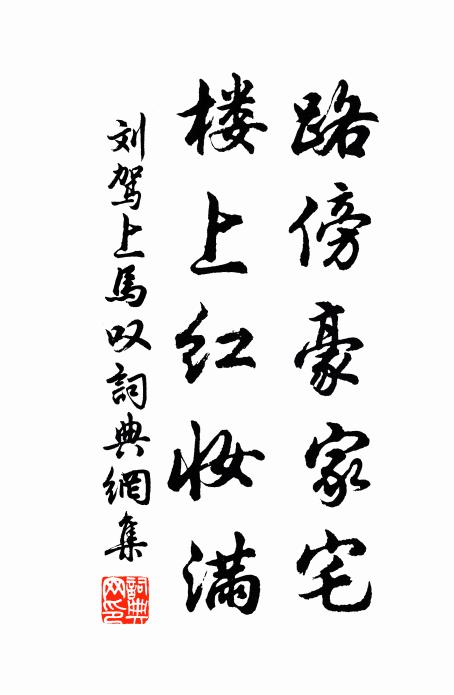 路傍豪家宅
楼上红妆满
刘驾上馬叹詞典網集
詞典网印